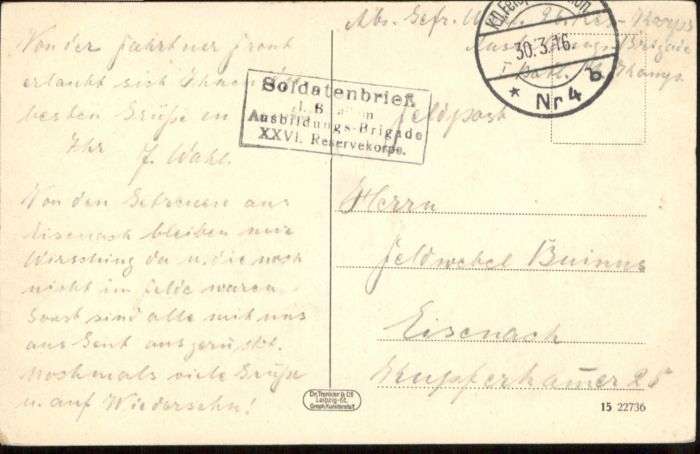 Von der Fahrt ner Front
erlaubt sich Ihnen die
besten Grüße zu
Ihr J. Wahl.
Von den Getreuen aus
Eisenach bleiben nur
Wirsching da u. die noch
nicht im Felde waren
Sonst sind alle mit uns
aus Gent ausgerückt.
Nochmals viele Grüße
u. auf Wiedersehn!
Soldatenbrief
Ausbildungs-Brigade
XXVI. Reservekorps.
Abs. Gefr. 26. Res-Korps
Brigade
I Batl. Komp.
30.3.16.
* Nr 4 b
Feldpost
Herrn
Feldwebel
Eisenach
Kupferhammer 25
Dr. Trenkler & Co
Leipzig-St.
Graph. Kunstanstalt
15 22736